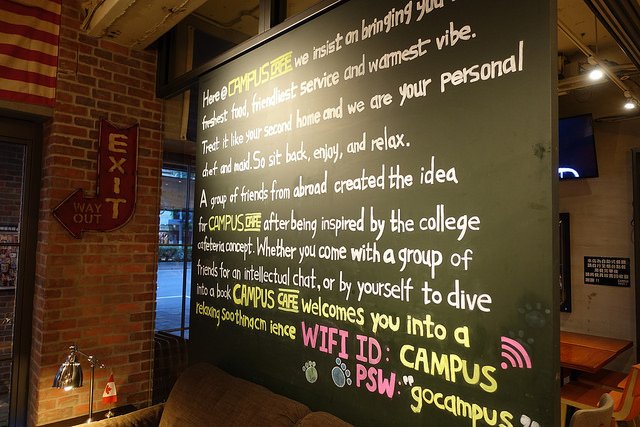 Here @ CAMPUS CAFE we insist on bringing you
freshest food, friendliest service and warmest vibe.
Treat it like your second home and we are your personal
chef and maid. So sit back, enjoy, and relax.
A group of friends from abroad created the idea
for CAMPUS CAFE after being inspired by the college
cafeteria concept. Whether you come with a group of
friends for an intellectual chat, or by yourself to dive
into a book CAMPUS CAFE welcomes you into a
relaxing soothing
WIFI ID: CAMPUS
PSW: "gocampus"
EXIT
WAY
OUT